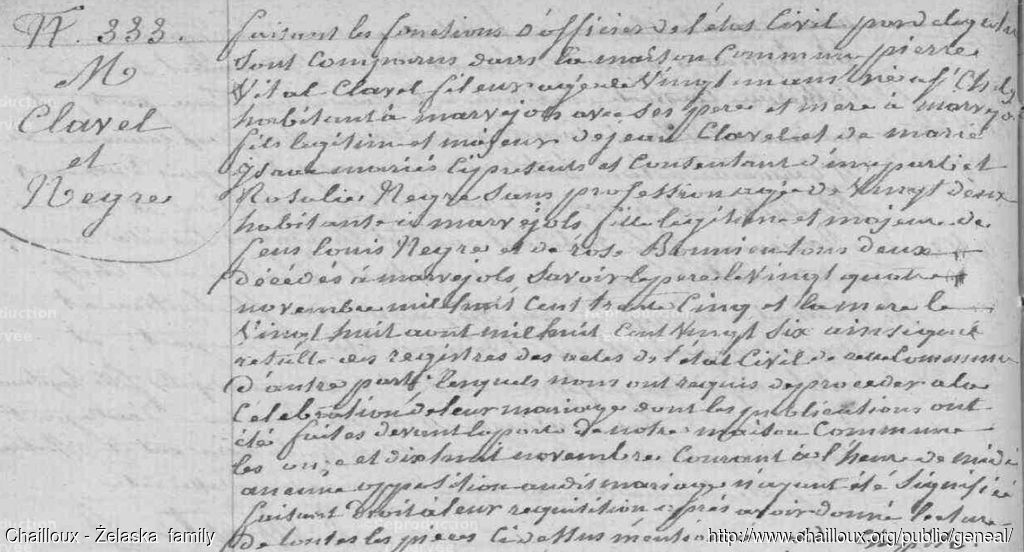 N. 333.
M
Clavel
et
Neyre
faisant les fonctions d'officier de l'état Civil par
Sont Comparus dans la maison Commune pierre
Vital Clavel fileur agé de Vingt un ans né a St Chely
habitant à marvejols avec ses pere et mere à marvejols
fils legitime et majeur de jean Clavel et de marie
mariés Cy presents et Consentant d'une part et
Rosalie Neyre Sans profession agée de Vingt deux
habitante à marvejols fille legitime et majeure de
feus louis Neyre et de rose tous deux
décédés à marvejols Savoir le pere le Vingt quatre
novembre mil huit Cent trente Cinq et la mere le
Vingt huit aout mil huit Cent Vingt Six ainsi que
resulte des registres des actes de l'état Civil de cette Commune
d'autre part; lesquels nous ont requis de proceder a la
Célébration de leur mariage dont les publications ont
été faites devant la porte de notre maison Commune
les onze et dix huit novembre Courant à l'heure de midi
aucune opposition audit mariage n'ayant été Signifié
faisant droit à leur requisition après avoir donné lecture
de toutes les pieces Ci dessus
Reproduction
Chailloux - Żelaska family
http://www.chailloux.org/public/geneal/